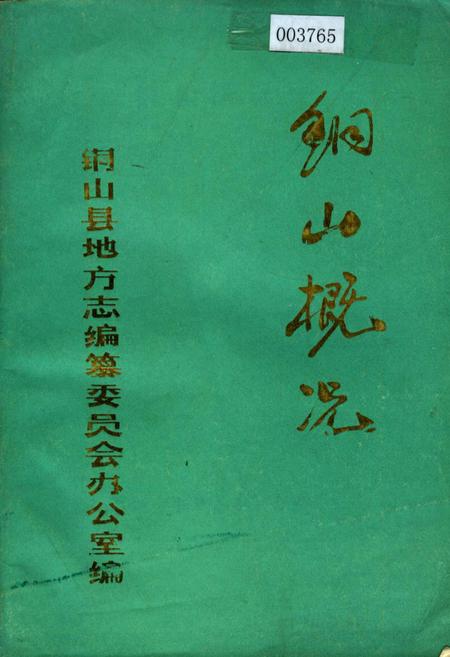 003765
铜山概况
铜山县地方志编纂委员会办公室编